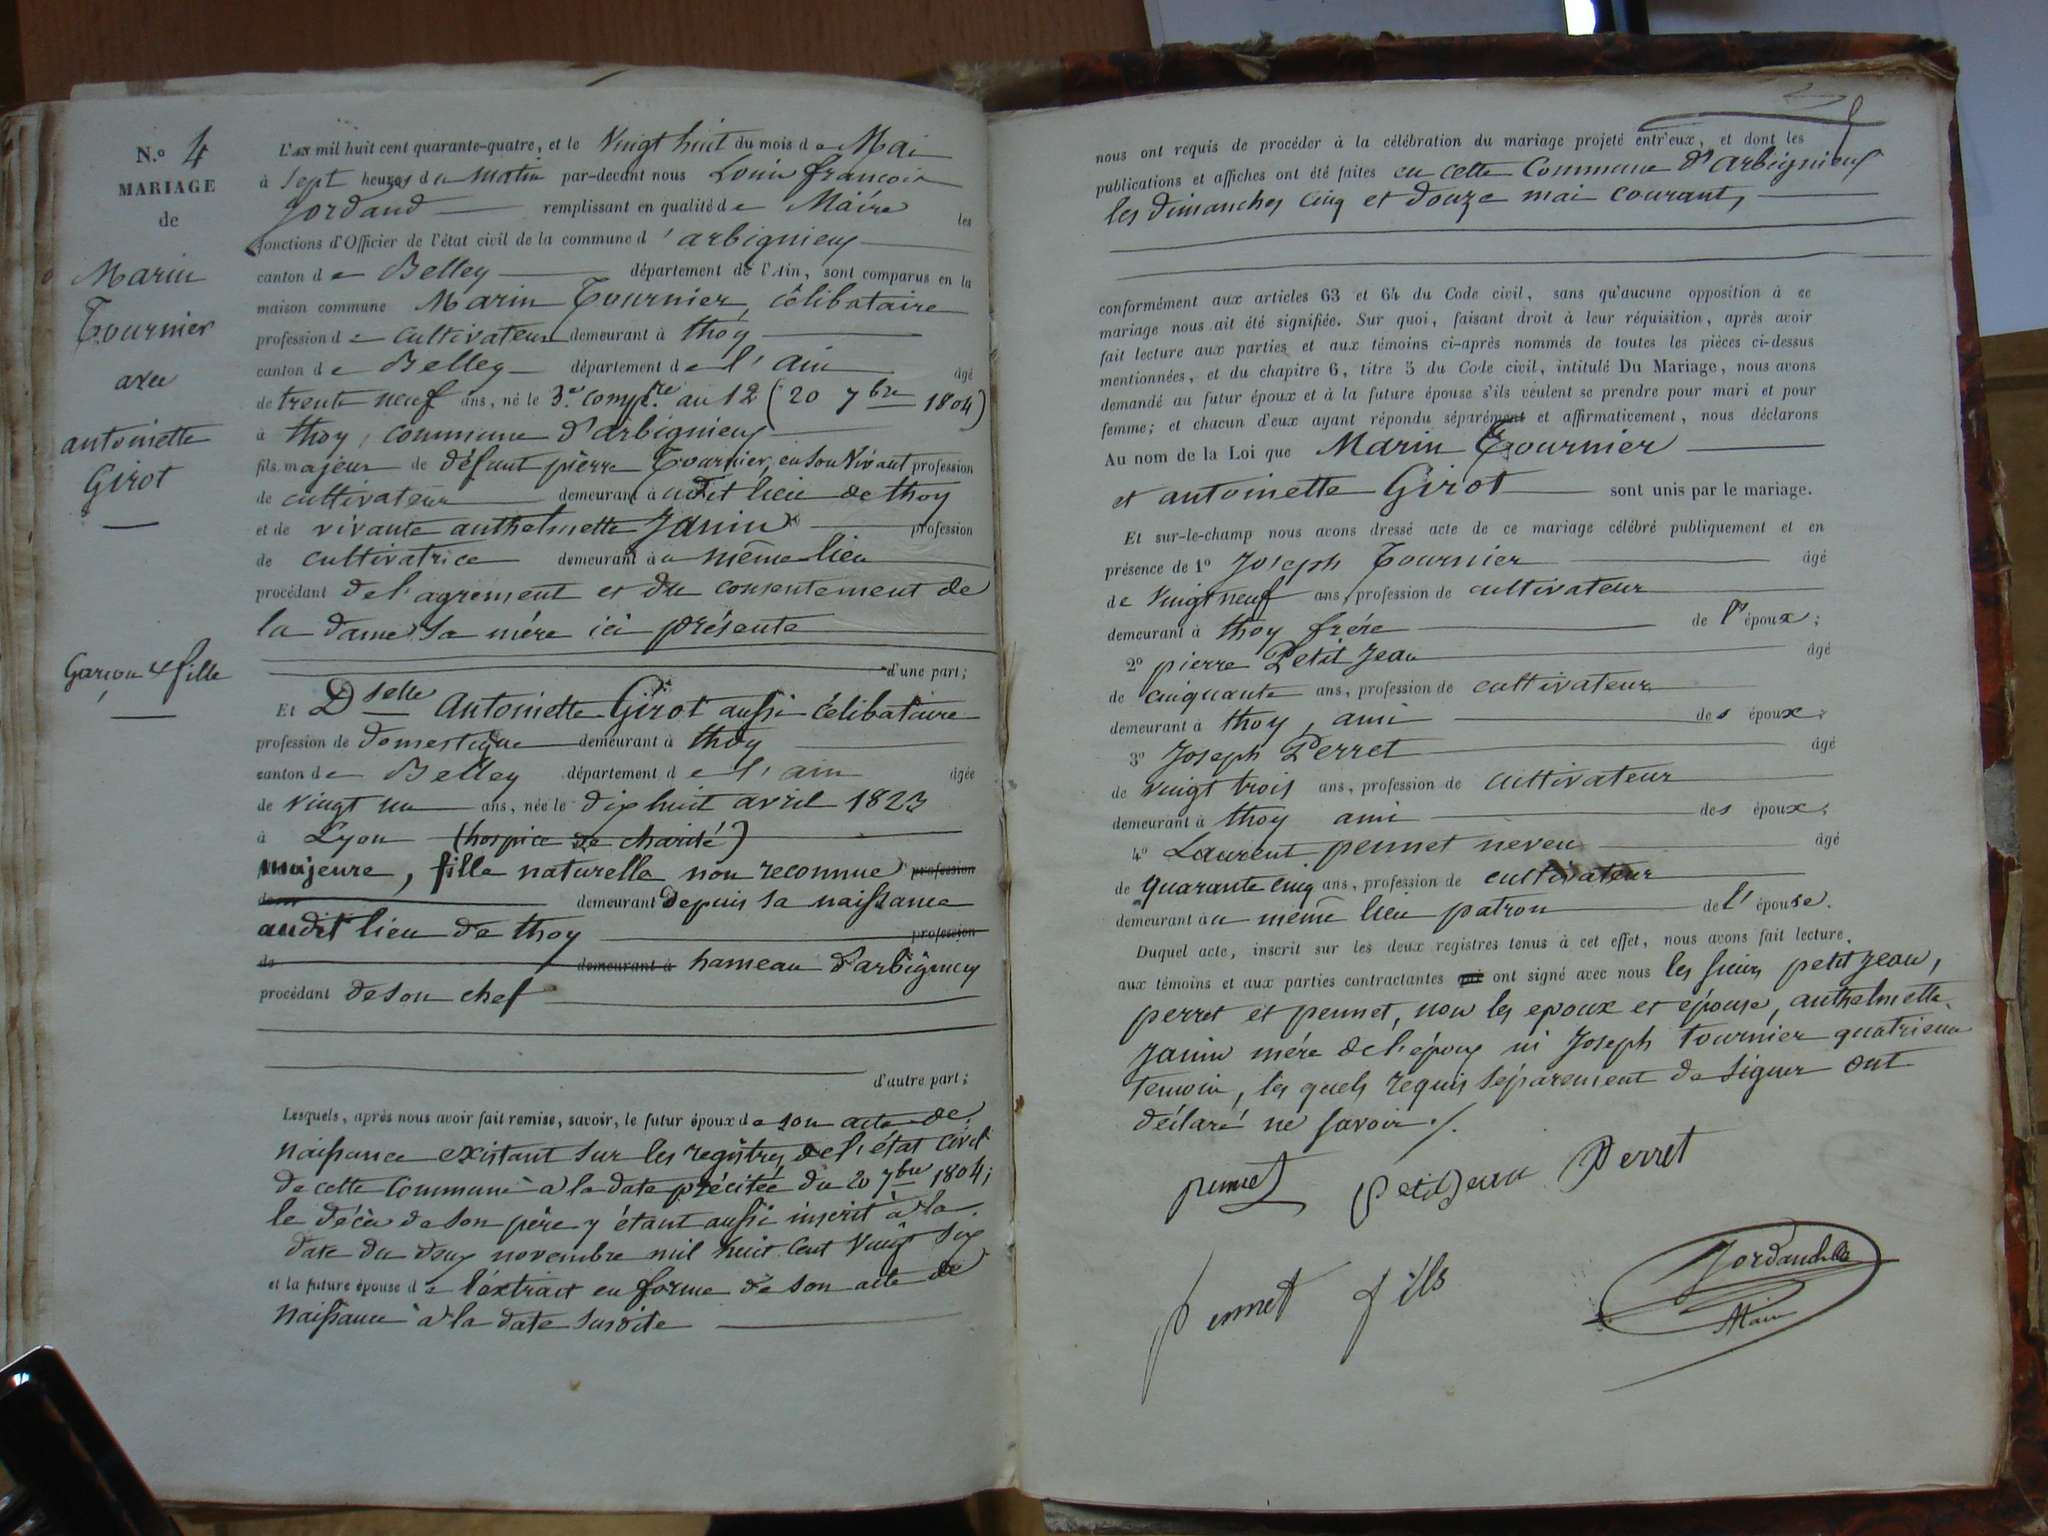 N.o 4
MARIAGE
de
Marin
Tournier
avec
antoinette
Girot
Garçon & fille
L'AN mil huit cent quarante-quatre, et le Vingt huit du mois de Mai
à Sept heures du matin par-devant nous Louis françois
Jordand remplissant en qualité de Maire les
fonctions d'Officier de l'état civil de la commune d'arbignieu
canton de Belley département de l'Ain, sont comparus en la
maison commune Marin Tournier, célibataire
profession de cultivateur demeurant à thoy
canton de Belley département de l'ain âgé
de trente neuf ans, né le 3.e comp.re an 12 (20 7bre 1804)
à thoy, commune d'arbignieu
fils majeur de défunt pierre Tournier, en son vivant profession
de cultivateur demeurant audit lieu de thoy
et de vivante anthelmette Janin profession
de cultivatrice demeurant au même lieu
procédant de l'agrément et du consentement de
la dame sa mère ici présente
d'une part;
Et Dselle Antoinette Girot aussi célibataire
profession de domestique demeurant à thoy
canton de Belley département de l'ain âgée
de vingt un ans, née le dix huit avril 1823
à Lyon (hospice de charité)
majeure, fille naturelle non reconnue profession
demeurant depuis sa naissance
audit lieu de thoy profession
de demeurant à hameau d'arbignieu
procédant de son chef
d'autre part;
Lesquels, après nous avoir fait remise, savoir, le futur époux de son acte de
naissance existant sur les registres de l'état civil
de cette Commune à la date précitée du 20 7bre 1804;
le décès de son père y étant aussi inscrit à la
date du deux novembre mil huit cent vingt six
et la future épouse de l'extrait en forme de son acte de
naissance à la date susdite
nous ont requis de procéder à la célébration du mariage projeté entr'eux, et dont les
publications et affiches ont été faites en cette Commune d'arbignieu
les dimanches cinq et douze mai courant,
conformément aux articles 63 et 64 du Code civil, sans qu'aucune opposition à ce
mariage nous ait été signifiée. Sur quoi, faisant droit à leur réquisition, après avoir
fait lecture aux parties et aux témoins ci-après nommés de toutes les pièces ci-dessus
mentionnées, et du chapitre 6, titre 5 du Code civil, intitulé Du Mariage, nous avons
demandé au futur époux et à la future épouse s'ils veulent se prendre pour mari et pour
femme; et chacun d'eux ayant répondu séparément et affirmativement, nous déclarons
Au nom de la Loi que Marin Tournier
et antoinette Girot sont unis par le mariage.
Et sur-le-champ nous avons dressé acte de ce mariage célébré publiquement et en
présence de 1o Joseph Tournier âgé
de Vingt neuf ans, profession de cultivateur
demeurant à thoy frère de l'époux;
2o pierre Petit Jean âgé
de cinquante ans, profession de cultivateur
demeurant à thoy, ami des époux;
3o Joseph Perret âgé
de vingt trois ans, profession de cultivateur
demeurant à thoy ami des époux;
4o Laurent pennet neveu âgé
de quarante cinq ans, profession de cultivateur
demeurant au même lieu patron de l'épouse.
Duquel acte, inscrit sur les deux registres tenus à cet effet, nous avons fait lecture
aux témoins et aux parties contractantes qui ont signé avec nous les sieurs petit Jean,
perret et pennet, non les epoux et épouse, anthelmette
Janin mère de l'époux ni Joseph tournier quatrieme
temoin, les quels requis séparement de signer ont
déclaré ne savoir ./.
pennet Petit Jean Perret
pennet fils
Jordand
Maire